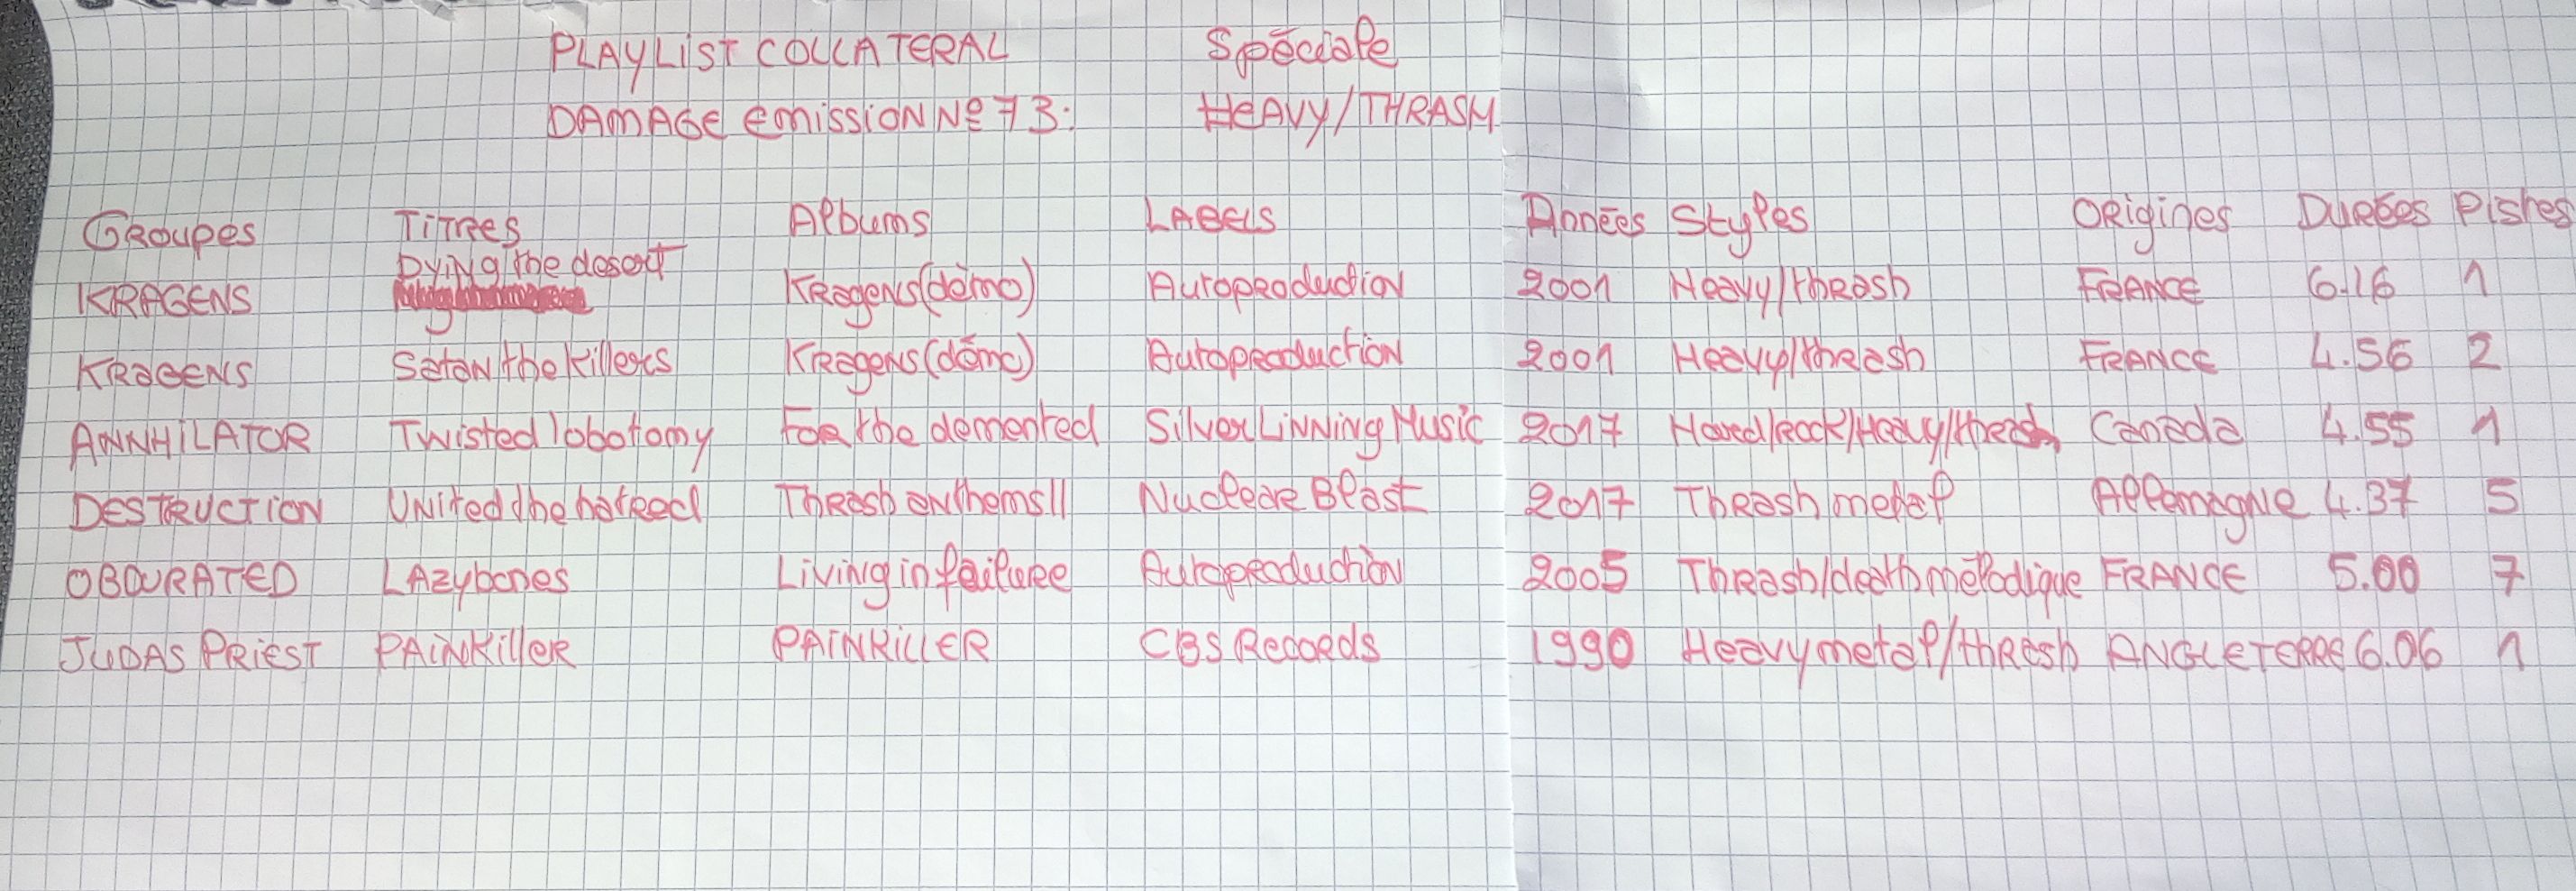 PLAYLIST COLLATERAL Spéciale
DAMAGE emission Nº 73: HEAVY/THRASH
Groupes Titres Albums LABELS Années Styles Origines Durées Pistes
Dying the desert
KRAGENS Kragens(démo) Autoproduction 2001 Heavy/thrash FRANCE 6.16 1
KRAGENS Satan the killers Kragens(démo) Autoproduction 2001 Heavy/thrash FRANCE 4.56 2
ANNHILATOR Twisted lobotomy For the demented Silver Linning Music 2017 Hared/rock/Heavy/thrash Canada 4.55 1
DESTRUCTION United the hatred Thrash anthems II Nucleare Blast 2017 Thrash metal Allemagne 4.37 5
OBDURATED LAzybones Living in failure Autoproduction 2005 Thrash/death mélodique FRANCE 5.00 7
JUDAS PRIEST PAINKiller PAINKILLER CBS Records 1990 Heavy metal/thrash ANGLETERRE 6.06 1